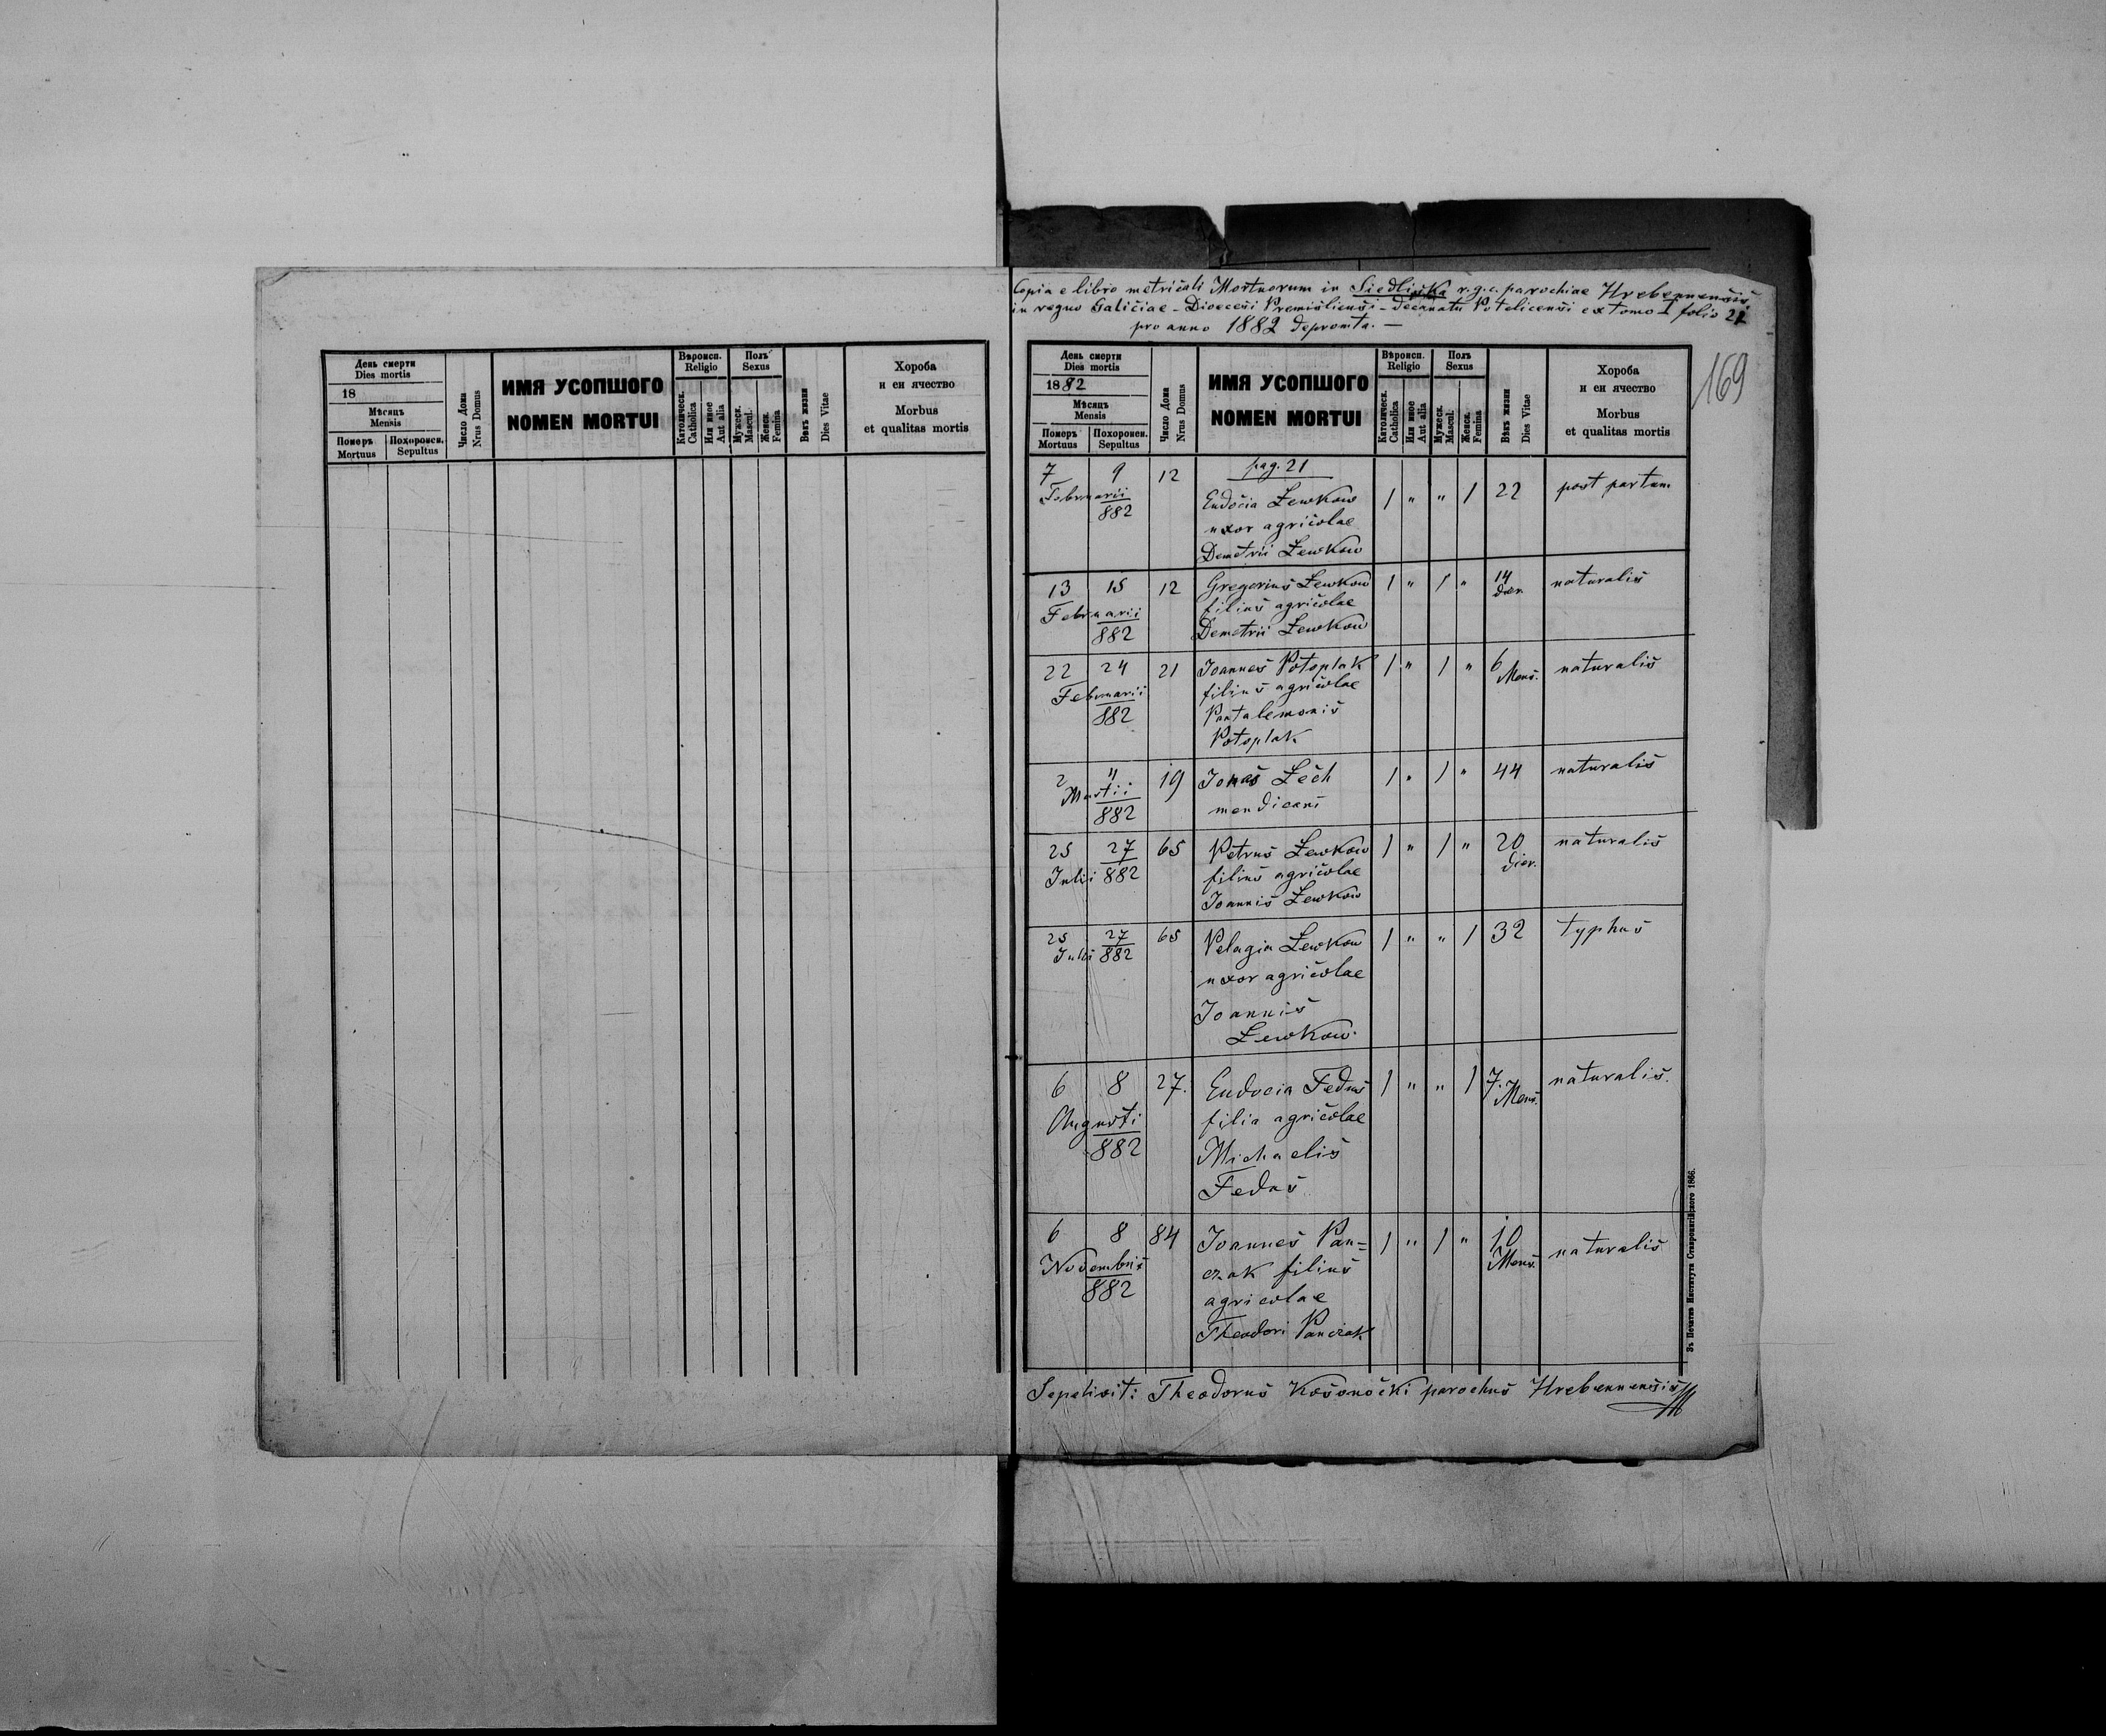 Copia e libro metricali Mortuorum in Siedliska r.g.c. parochiae Hrebennensis
in regno Galiciae - Dioecesi Premisliensi - Decanatu Potelicensi ex tomo I folio 21
pro anno 1882 depromta. —
169
День смерти
Dies mortis
18
Мѣсяць
Mensis
Померъ
Mortuus
Похоронен.
Sepultus
Число Дома
Nrus Domus
ИМЯ УСОПШОГО
NOMEN MORTUI
Вѣроисп.
Religio
Католическ.
Catholica
Или иное
Aut alia
Полъ
Sexus
Мужеск.
Mascul.
Женск.
Femina
Вѣкъ жизни
Dies Vitae
Хороба
и еи ячество
Morbus
et qualitas mortis
День смерти
Dies mortis
1882
Мѣсяць
Mensis
Померъ
Mortuus
Похоронен.
Sepultus
Число Дома
Nrus Domus
ИМЯ УСОПШОГО
NOMEN MORTUI
Вѣроисп.
Religio
Католическ.
Catholica
Или иное
Aut alia
Полъ
Sexus
Мужеск.
Mascul.
Женск.
Femina
Вѣкъ жизни
Dies Vitae
Хороба
и еи ячество
Morbus
et qualitas mortis
pag. 21
7 9 12 Eudocia Lewkow 1 " " 1 22 post partum
Februarii
882
uxor agricolae
Demetrii Lewkow
13 15 12 Gregorius Lewkow 1 " 1 " 14 naturalis
dier.
Februarii filius agricolae
882 Demetrii Lewkow
22 24 21 Joannes Potoplak 1 " 1 " 6 Mens. naturalis
Februarii filius agricolae
882 Pantalemonis
Potoplak
2 4 19 Jonas Lech 1 " 1 " 44 naturalis
Martii mendicans
882
25 27 65 Petrus Lewkow 1 " 1 " 20 naturalis
dier.
Julii 882 filius agricolae
Joannis Lewkow
25 27 65 Pelagia Lewkow 1 " " 1 32 typhus
Julii 882
uxor agricolae
Joannis
Lewkow
6 8 27. Eudocia Fedus 1 " " 1 7. Mens. naturalis.
Augusti filia agricolae
882 Michaelis
Fedus
6 8 84 Joannes Pan= 1 " 1 " 10 Mens. naturalis
Novembris czak filius
882 agricolae
Theodori Panczak
Sepelivit: Theodorus Kosonocki parochus Hrebennensis
Зъ Печатнѣ Института Ставропигійского 1866.